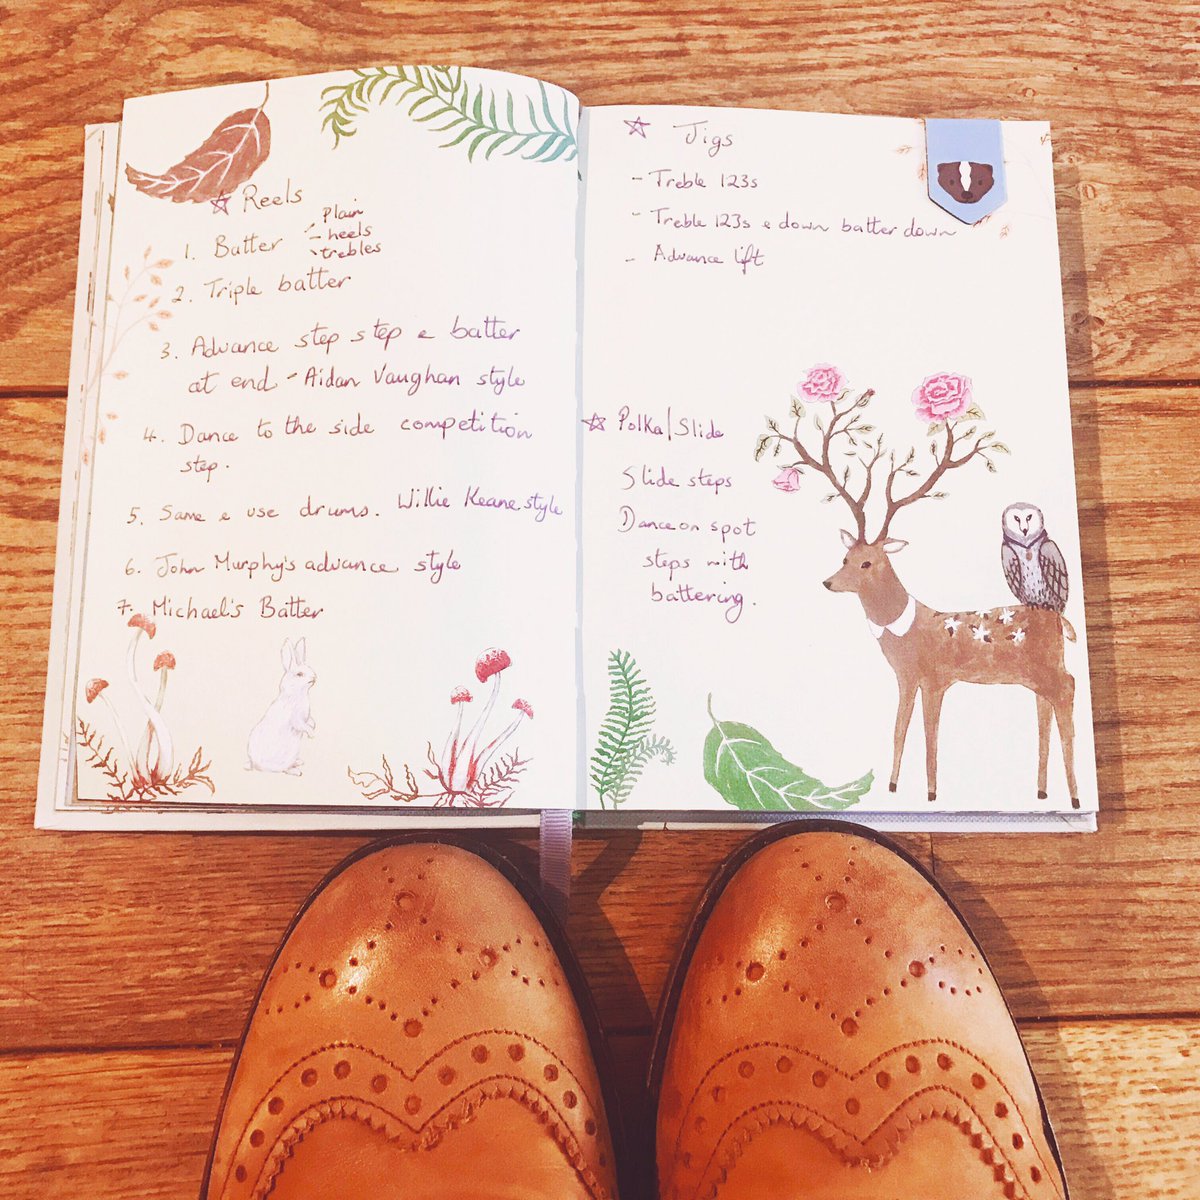 ☆ Reels
Plain
1. Batter - heels
trebles
2. Triple batter
3. Advance step step & batter
at end - Aidan Vaughan style
4. Dance to the side competition
step.
5. Same & use drums. Willie Keane style
6. John Murphy's advance style
7. Michael's Batter
☆ Jigs
- Treble 123s
- Treble 123s & down batter down
- Advance lift
☆ Polka/Slide
Slide steps
Dance on spot
steps with
battering.